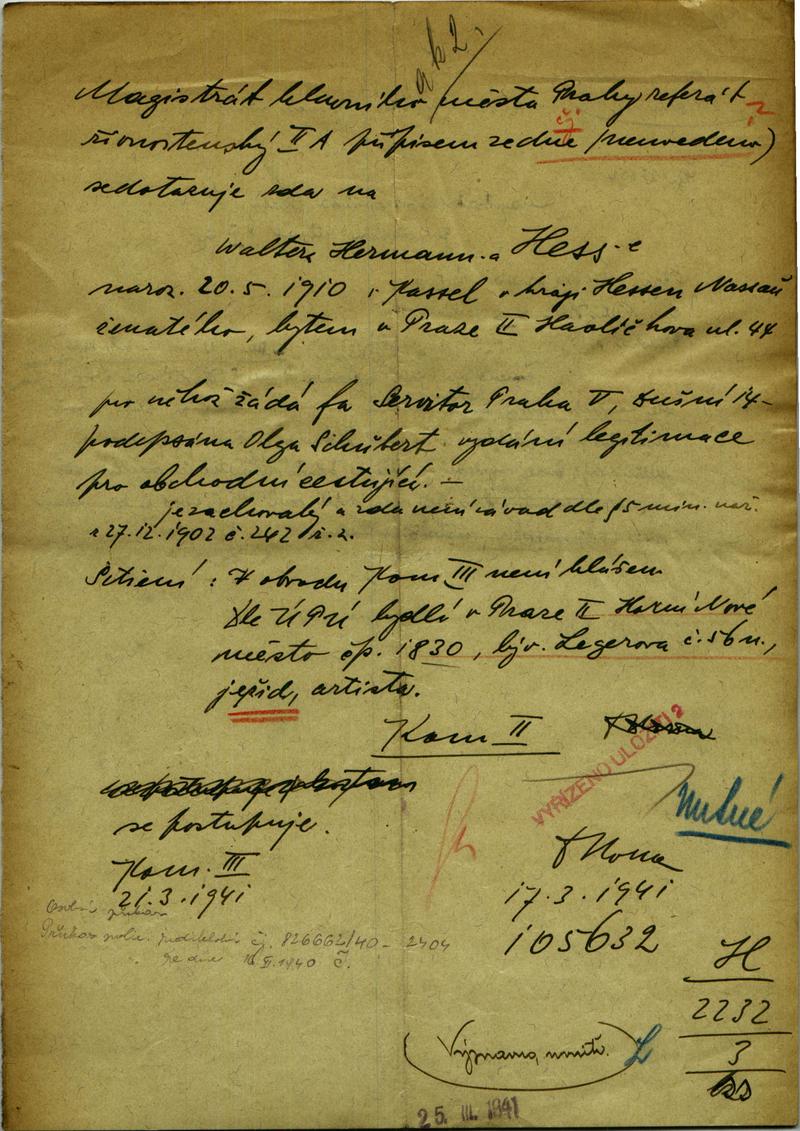 Magistrát hlavního města Prahy referát
živnostenský II A přípisem ze dne (neuvedeno)
č.j. ?
se dotazuje zda na
Waltera Hermann-a Hess-e
naroz. 20.5.1910 v Kassel v kraji Hessen Nassau
ženatého, bytem v Praze II Havlíčkova ul. 44
pro něhož žádá fa Servitor Praha V, Dušní 14-
podepsána Olga Schubert vydání legitimace
pro obchodní cestující. —
je zachovalý a zda není závad dle §5 min. nař.
z 27.12.1902 č. 242 ř.z.
Šetření: V obvodu Kom III není hlášen
Dle ÚPÚ bydlí v Praze II Horní Nové
město čp. 1830, býv. Legerova č. 56 n.,
je žid, artista.
Kom II
VYŘÍZENO ULOŽITI 2
Nutné
se postupuje.
Kom. III
21.3.1941
17.3.1941
105632
Osobní průkaz
Průkaz polic. ředitelství čj. 826662/40 - 2404
ze dne
1940 č.
H
2232
3
25. III. 1941